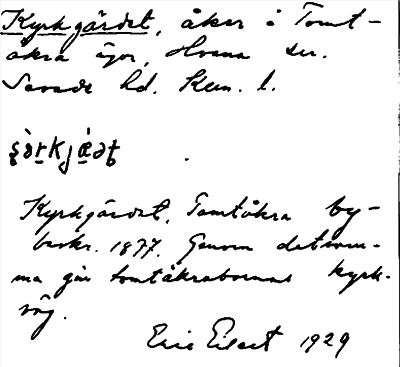 Kyrkgärdet, åker å Tomt-
åkra ägor, Hvena sn.
hd. l.
Kyrkgärdet, Tomtåkra by-
beskr. 1877. Genom detsam-
ma går tomtåkrabornas kyrk-
väg.
Eric Elsert 1929